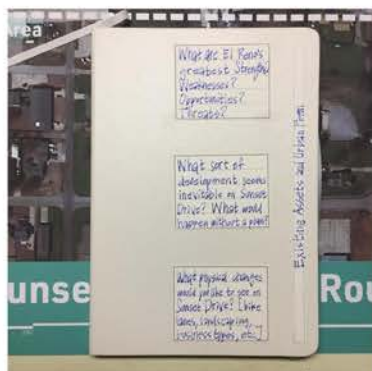 Area
What are El Reno's
greatest Strengths?
Weaknesses?
Opportunities?
Threats?
What sort of
development seems
inevitable on Sunset
Drive? What would
happen without a plan?
What physical changes
would you like to see on
Sunset Drive? [bike
lanes, landscaping,
business types, etc.]
Existing Assets and Urban Form
unse
Rou